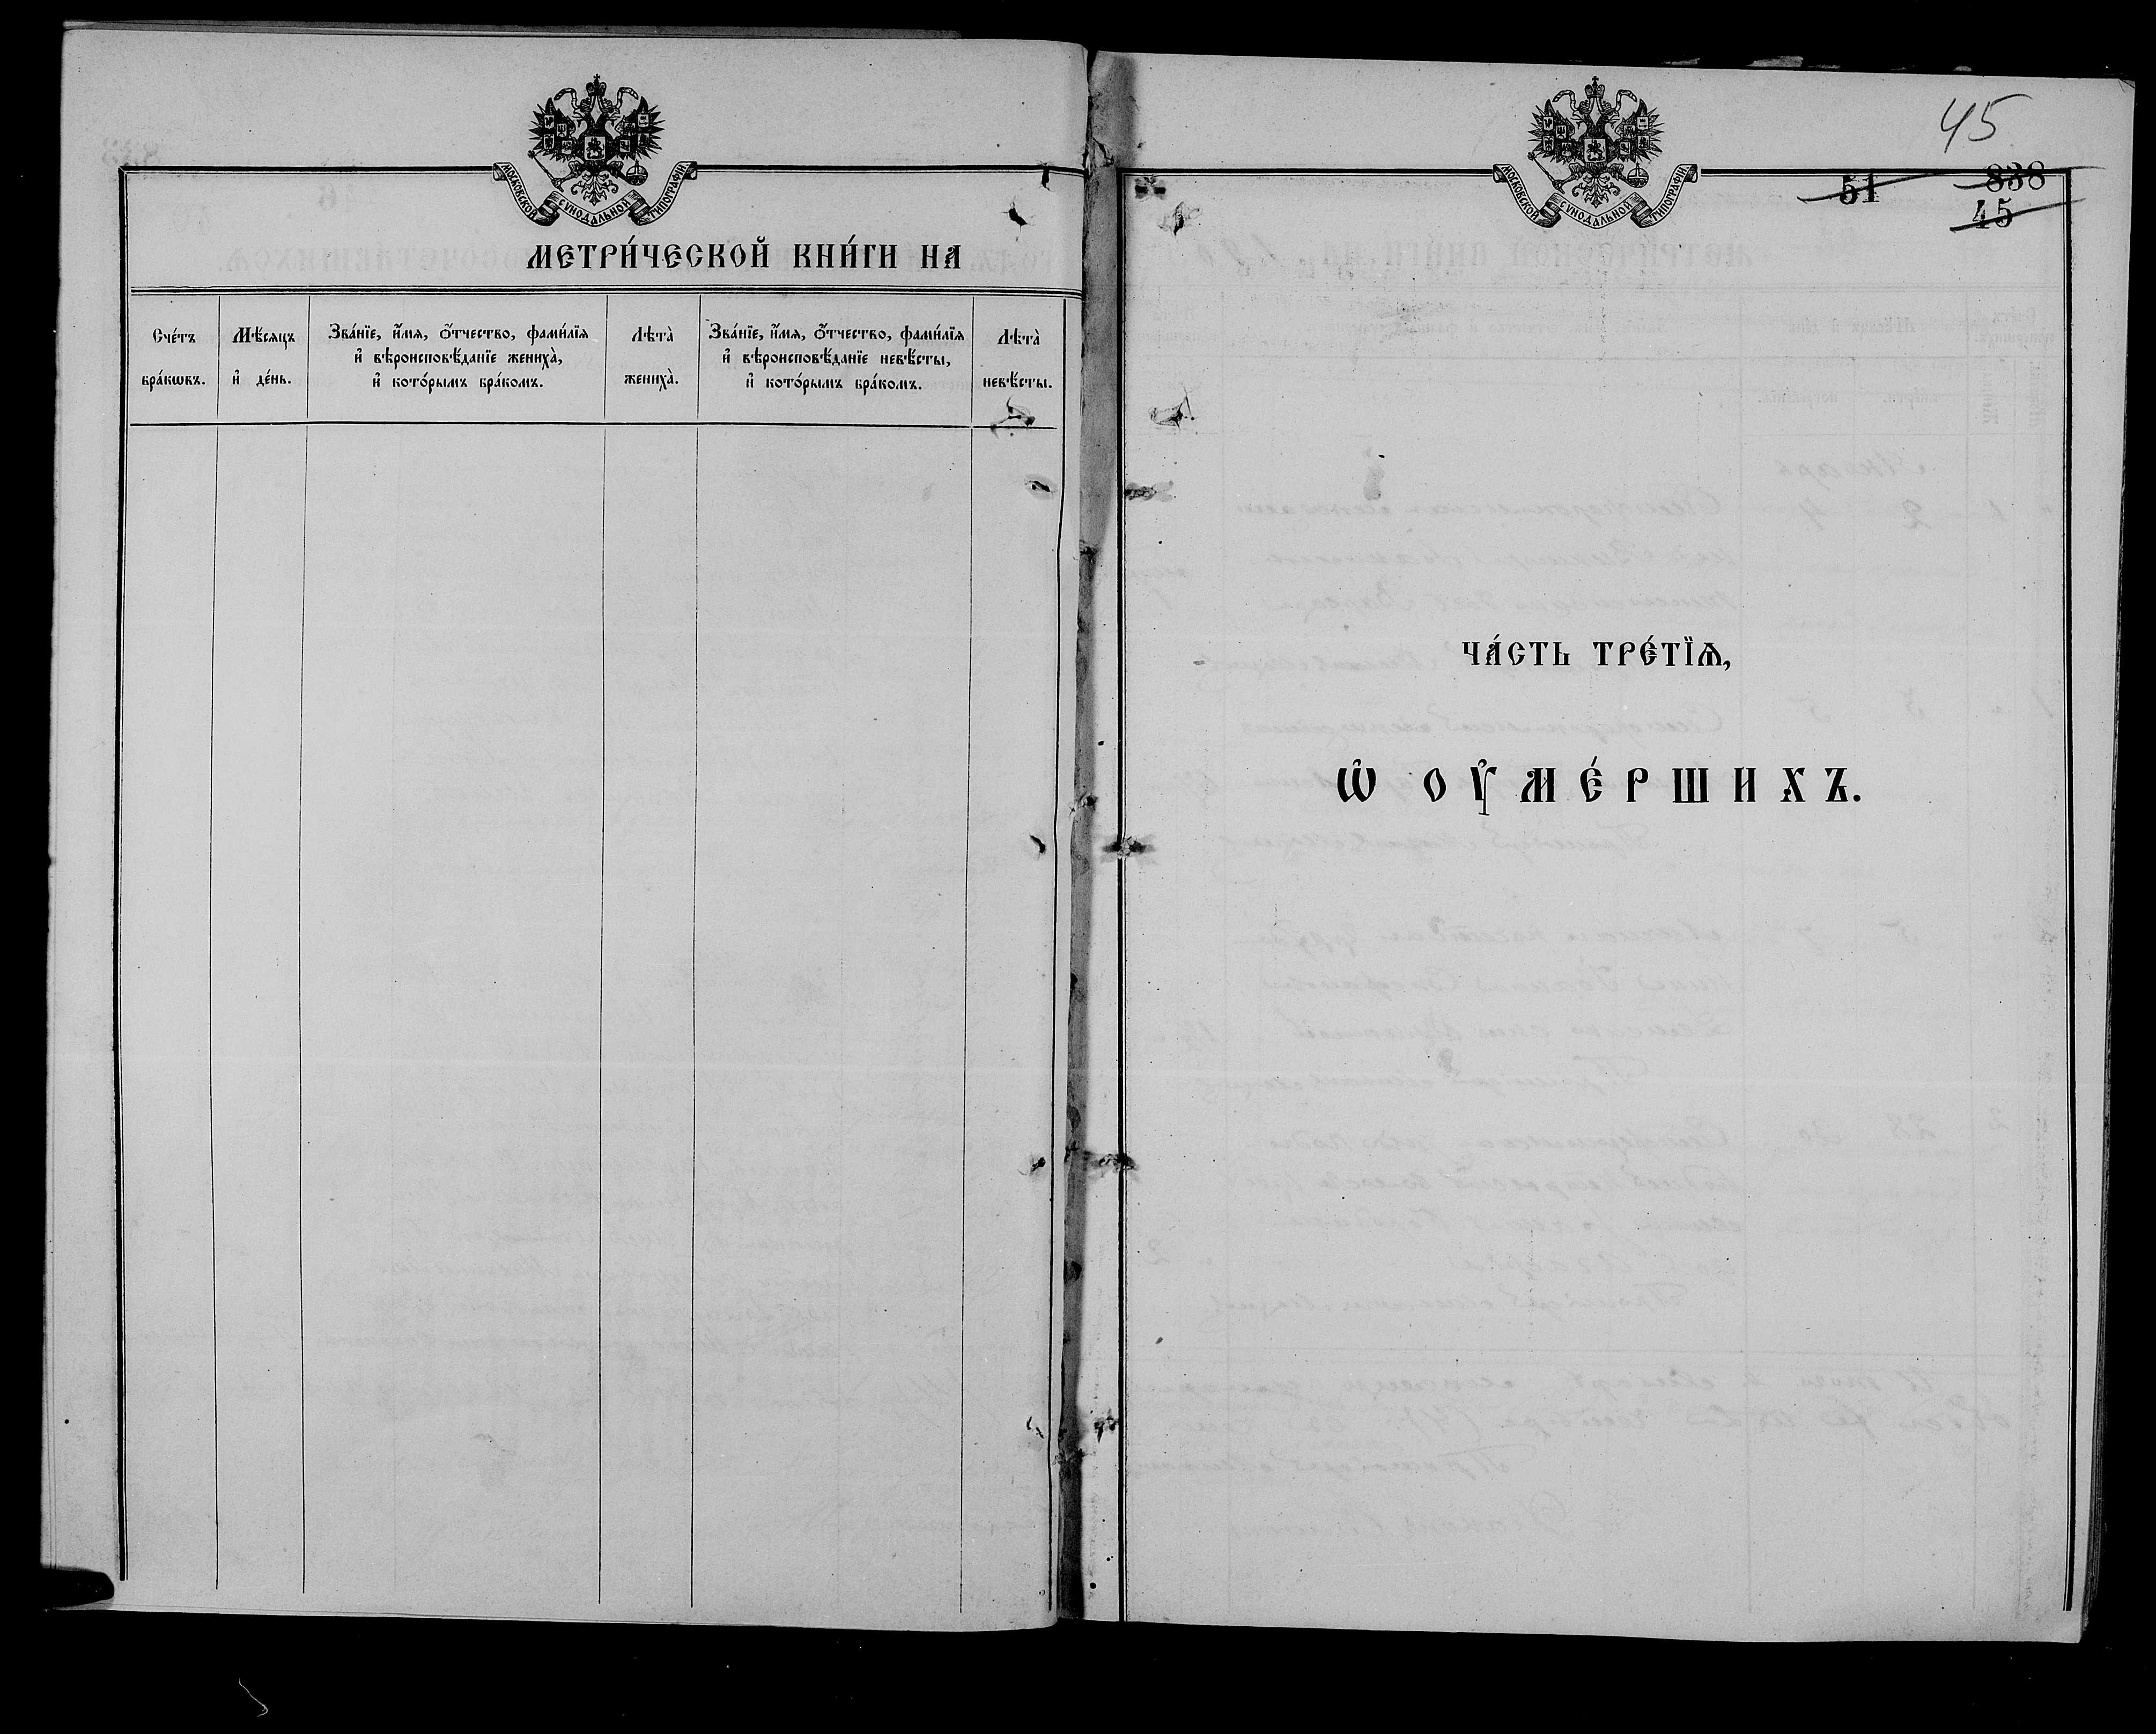 МОСКОВСКОЙ СѴНОДАЛЬНОЙ ТИПОГРАФІИ
МЕТРИ́ЧЕСКОЙ КНИ́ГИ НА
Сче́тъ
бра́кѡвъ.
Мѣ́сяцъ
и҆ де́нь.
Зва́нїе, и҆́мя, ѻ҆́тчество, фами́лїя
и҆ вѣроисповѣ́данїе жениха̀,
и҆ кото́рымъ бра́комъ.
Лѣта̀
жениха̀.
Зва́нїе, и҆́мя, ѻ҆́тчество, фами́лїя
и҆ вѣроисповѣ́данїе невѣ́сты,
и҆ кото́рымъ бра́комъ.
Лѣта̀
невѣ́сты.
45
МОСКОВСКОЙ СѴНОДАЛЬНОЙ ТИПОГРАФІИ
51
838
45
ЧА́СТЬ ТРЕ́ТЇѦ,
Ѡ҆ ОУ҆МЕ́РШИХЪ.